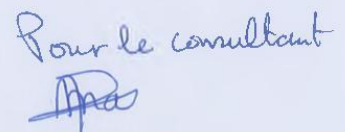 Pour le consultant